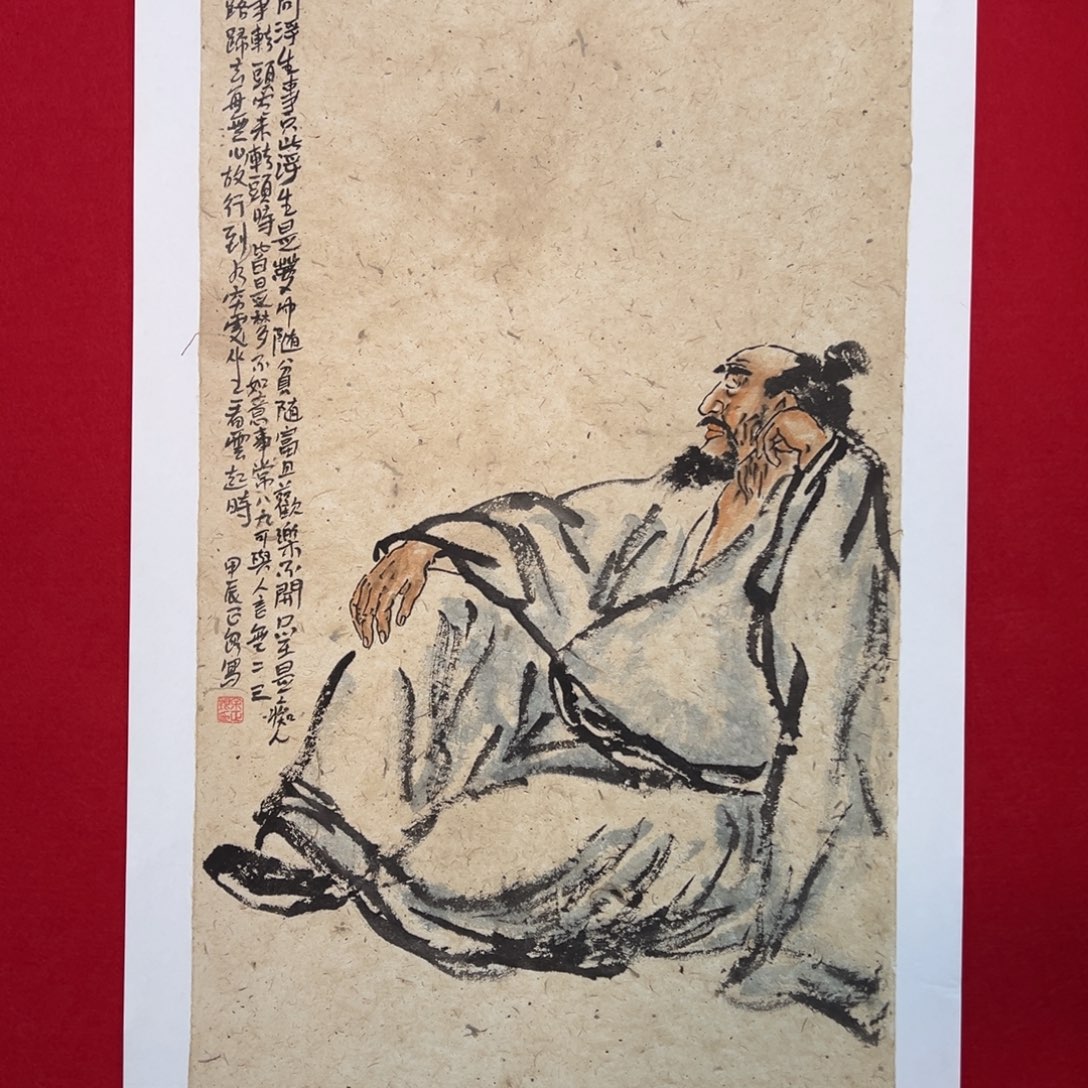 浮生事只此浮生是夢中随貧随富且歡樂不開口笑是痴人
事轉頭空未轉頭時皆是夢不如意事常八九可與人言無二三
歸去每無心放行到水窮處坐看雲起時 甲辰 寫